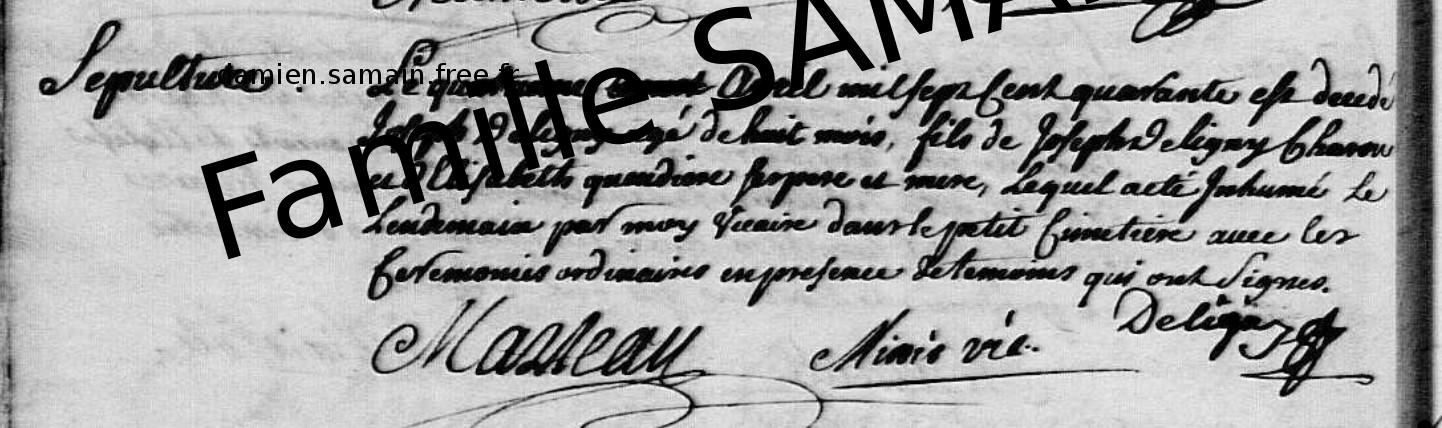 Sepulture.
damien.samain.free.fr
Famille SAMA
Le avril mil sept Cent quarante est decedé
Joseph Deligny agé de huit mois, fils de Joseph Deligny Charon
et Elisabeth ses pere et mere, Lequel a eté Inhumé Le
Lendemain par moy Vicaire dans le petit Cimetiere avec les
Ceremonies ordinaires en presence de temoins qui ont Signes.
Deligny
vic.